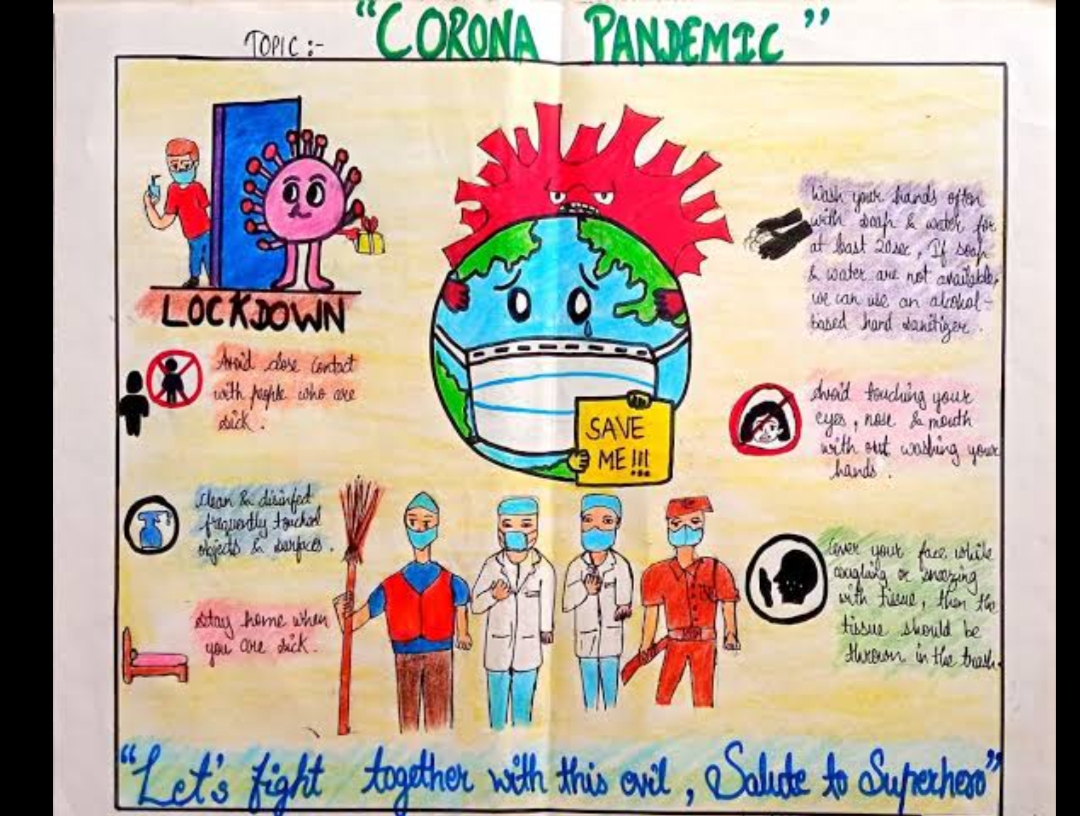 TOPIC :- "CORONA PANDEMIC"
LOCKDOWN
Avoid close contact
with people who are
sick.
Clean & disinfect
frequently touched
objects & surfaces.
Stay home when
you are sick.
SAVE
ME!!!
Wash your hands often
with soap & water for
at least 20sec, If soap
& water are not available,
we can use an alcohol-
based hand sanitizer.
Avoid touching your
eyes, nose & mouth
with out washing your
hands.
Cover your face while
coughing or sneezing
with tissue, then the
tissue should be
thrown in the trash.
"Let's fight together with this evil, Salute to Superhero"